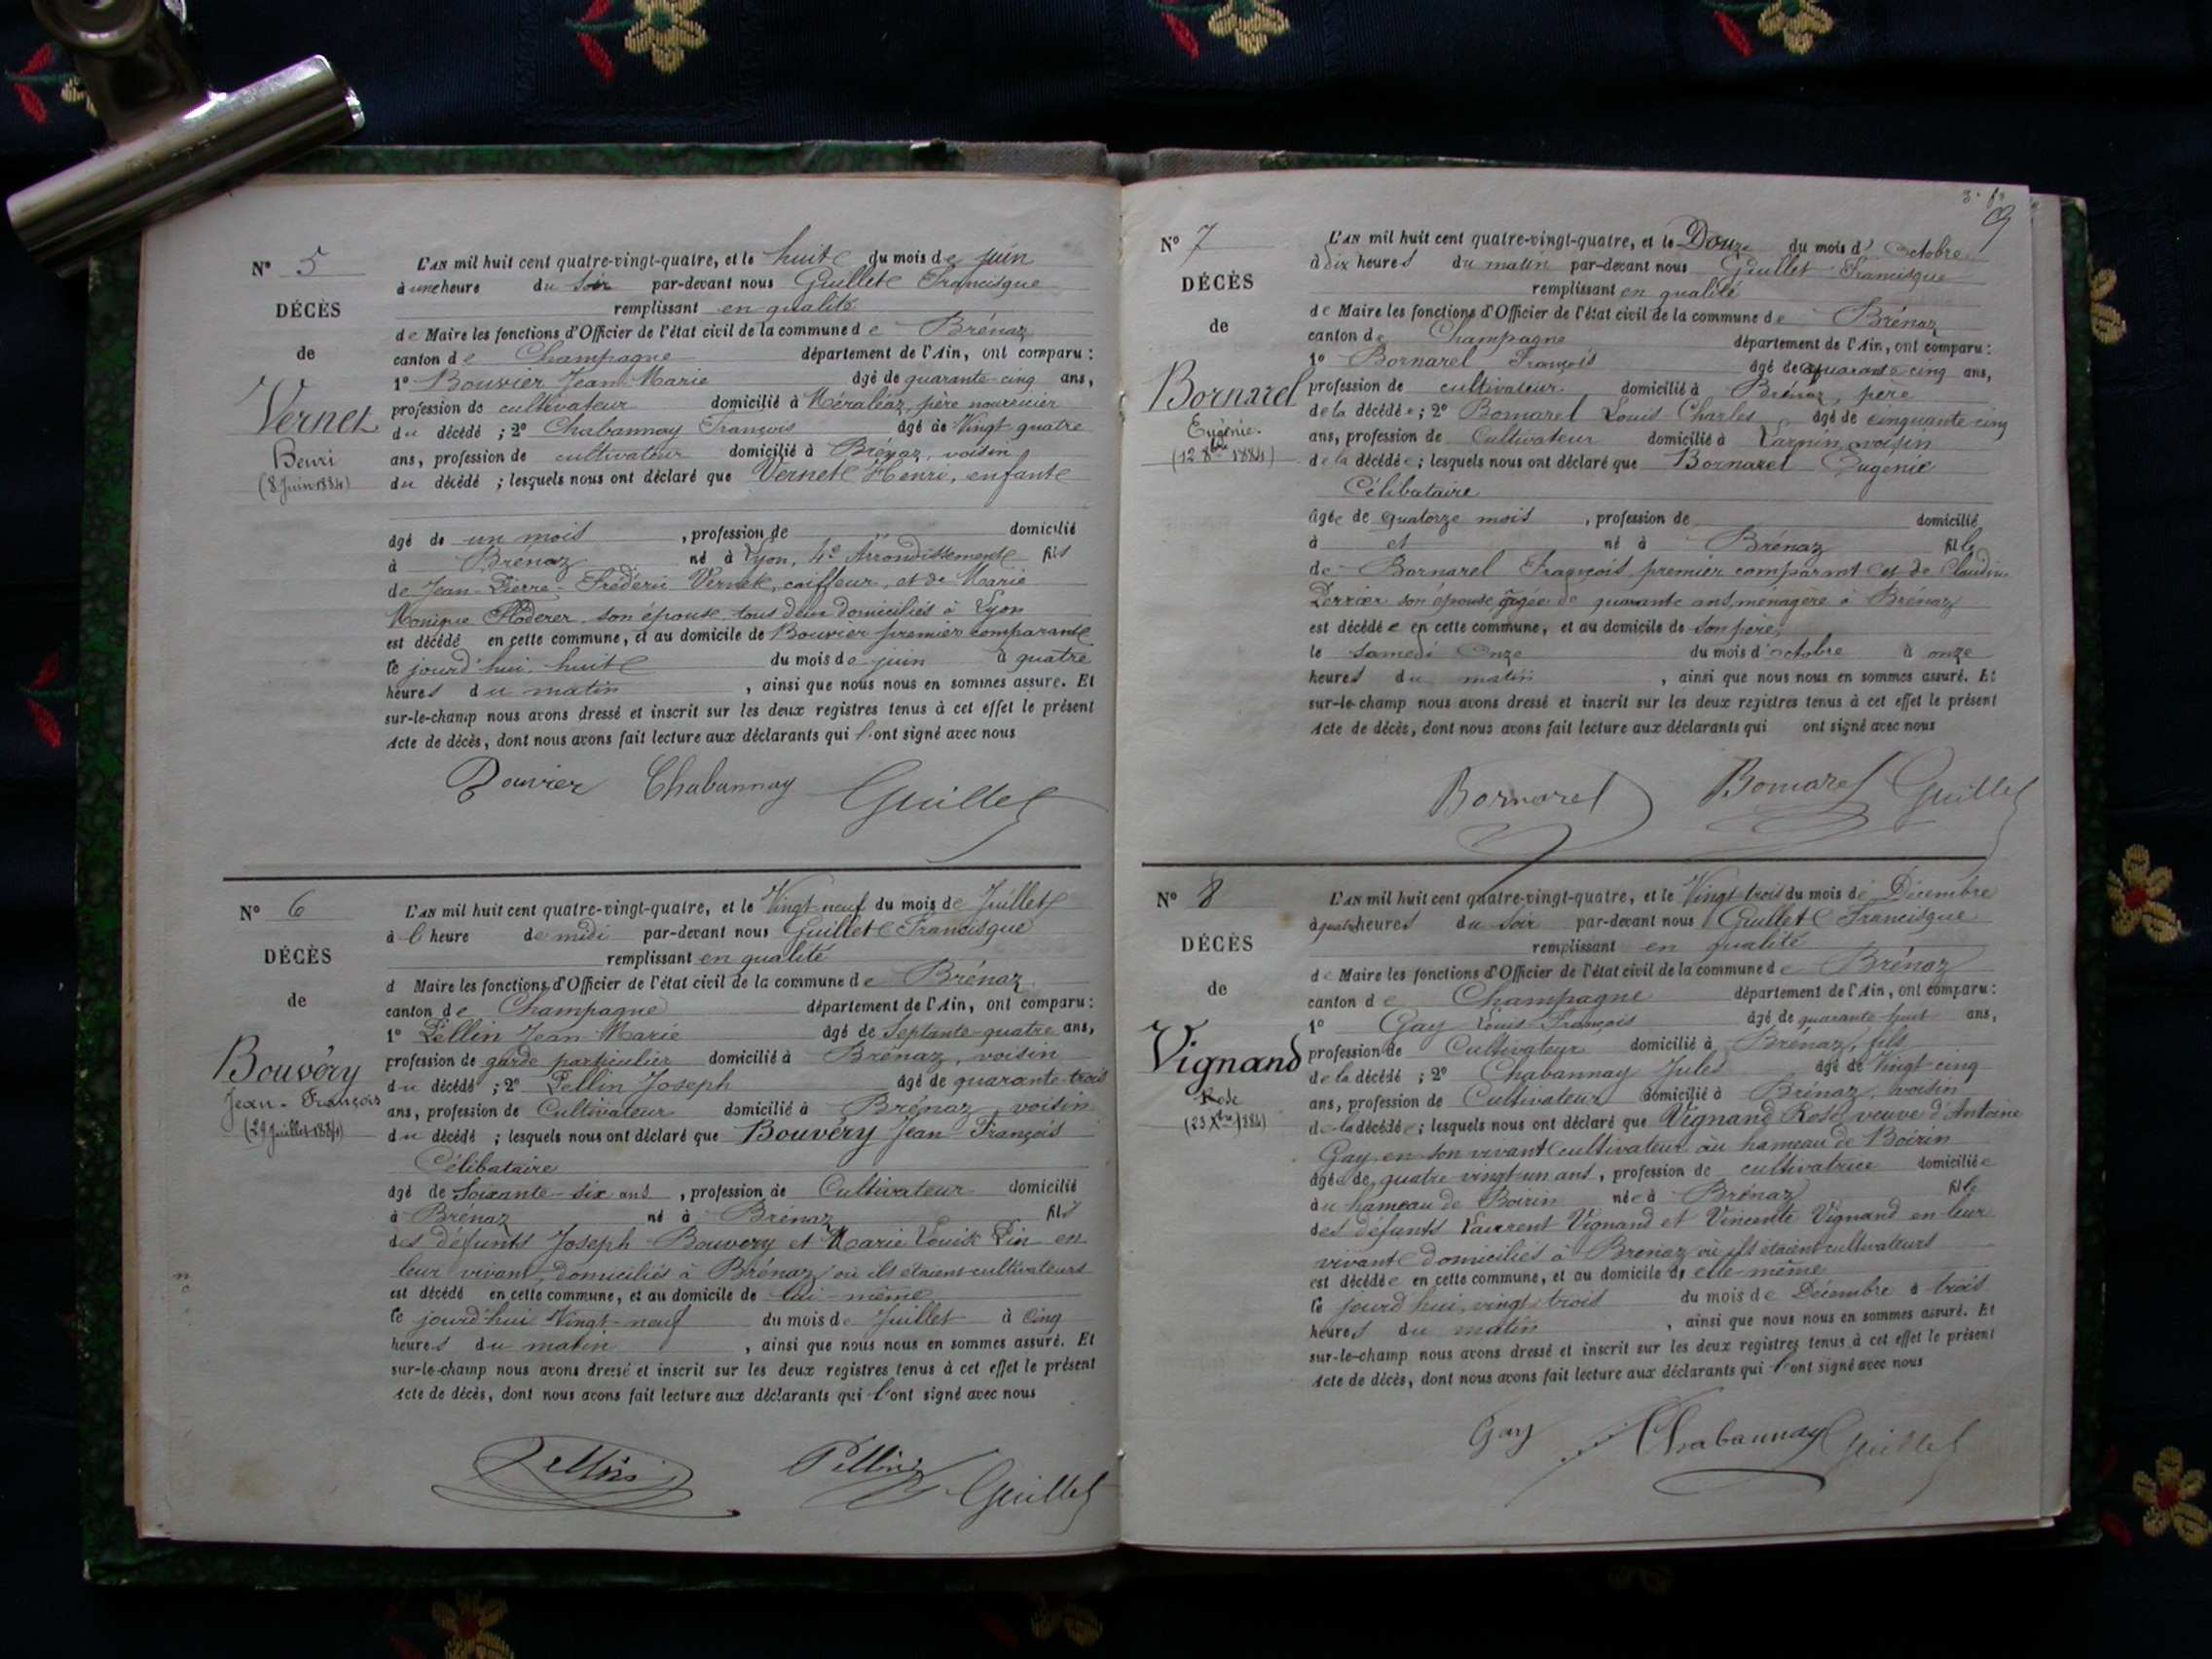 N° 5
DÉCÈS
de
Vernet
Henri
(8 Juin 1884)
L'AN mil huit cent quatre-vingt-quatre, et le huit du mois de juin
à une heure du soir par-devant nous Guillet Francisque
remplissant en qualité
de Maire les fonctions d'Officier de l'état civil de la commune de Brénaz
canton de Champagne département de l'Ain, ont comparu :
1° Bouvier Jean-Marie âgé de quarante-cinq ans,
profession de cultivateur domicilié à Méraléaz, père nourricier
du décédé ; 2° Chabannay François âgé de Vingt quatre
ans, profession de cultivateur domicilié à Brénaz, voisin
du décédé ; lesquels nous ont déclaré que Vernet Henri, enfant
âgé de un mois , profession de domicilié
à Brénaz né à Lyon, 4e Arrondissement fils
de Jean-Pierre-Frédéric Vernet, coiffeur, et de Marie
Monique son épouse, tous deux domiciliés à Lyon
est décédé en cette commune, et au domicile de Bouvier premier comparant
le jourd'hui huit du mois de juin à quatre
heures du matin , ainsi que nous nous en sommes assuré. Et
sur-le-champ nous avons dressé et inscrit sur les deux registres tenus à cet effet le présent
Acte de décès, dont nous avons fait lecture aux déclarants qui l'ont signé avec nous
Bouvier Chabannay Guillet
N° 6
DÉCÈS
de
Bouvéry
Jean-François
(29 Juillet 1884)
L'AN mil huit cent quatre-vingt-quatre, et le Vingt-neuf du mois de Juillet
à l'heure de midi par-devant nous Guillet Francisque
remplissant en qualité
d Maire les fonctions d'Officier de l'état civil de la commune de Brénaz
canton de Champagne département de l'Ain, ont comparu :
1° Pellin Jean Marie âgé de Septante-quatre ans,
profession de garde particulier domicilié à Brénaz, voisin
du décédé ; 2° Pellin Joseph âgé de quarante-trois
ans, profession de Cultivateur domicilié à Brénaz, voisin
du décédé ; lesquels nous ont déclaré que Bouvéry Jean François
Célibataire
âgé de Soixante-six ans , profession de Cultivateur domicilié
à Brénaz né à Brénaz fils
des défunts Joseph Bouvery et Marie Louise Pin en
leur vivant, domiciliés à Brénaz où ils étaient cultivateurs
est décédé en cette commune, et au domicile de lui-même
le jourd'hui Vingt-neuf du mois de Juillet à Cinq
heures du matin , ainsi que nous nous en sommes assuré. Et
sur-le-champ nous avons dressé et inscrit sur les deux registres tenus à cet effet le présent
Acte de décès, dont nous avons fait lecture aux déclarants qui l'ont signé avec nous
Pellin Pellin Guillet
N° 7
DÉCÈS
de
Bornarel
Eugénie
(12 8bre 1884)
L'AN mil huit cent quatre-vingt-quatre, et le Douze du mois d'Octobre
à dix heures du matin par-devant nous Guillet Francisque
remplissant en qualité
de Maire les fonctions d'Officier de l'état civil de la commune de Brénaz
canton de Champagne département de l'Ain, ont comparu :
1° Bornarel François âgé de quarante cinq ans,
profession de cultivateur domicilié à Brénaz, père
de la décédée ; 2° Bornarel Louis-Charles âgé de cinquante cinq
ans, profession de Cultivateur domicilié à voisin
de la décédée ; lesquels nous ont déclaré que Bornarel Eugénie
Célibataire
âgée de quatorze mois , profession de domicilié
à et né à Brénaz fille
de Bornarel François, premier comparant et de Claudine
Perrier son épouse âgée de quarante ans, ménagère à Brénaz
est décédée en cette commune, et au domicile de son père,
le samedi Onze du mois d'octobre à onze
heures du matin , ainsi que nous nous en sommes assuré. Et
sur-le-champ nous avons dressé et inscrit sur les deux registres tenus à cet effet le présent
Acte de décès, dont nous avons fait lecture aux déclarants qui ont signé avec nous
Bornarel Bornarel Guillet
N° 8
DÉCÈS
de
Vignand
Rose
(23 Xbre 1884)
L'AN mil huit cent quatre-vingt-quatre, et le Vingt-trois du mois de Décembre
à quatre heures du soir par-devant nous Guillet Francisque
remplissant en qualité
de Maire les fonctions d'Officier de l'état civil de la commune de Brénaz
canton de Champagne département de l'Ain, ont comparu :
1° Gay Louis François âgé de quarante huit ans,
profession de Cultivateur domicilié à Brénaz, fils
de la décédé ; 2° Chabannay Jules âgé de Vingt cinq
ans, profession de Cultivateur domicilié à Brénaz, voisin
de la décédée ; lesquels nous ont déclaré que Vignand Rose veuve d'Antoine
Gay, en son vivant cultivateur au hameau de Boirin
âgée de quatre vingt-un ans , profession de cultivatrice domiciliée
au hameau de Boirin née à Brénaz fille
des défunts Laurent Vignand et Vincente Vignand en leur
vivant domiciliés à Brénaz où ils étaient cultivateurs
est décédée en cette commune, et au domicile de elle-même
le jourd'hui, vingt-trois du mois de Décembre à trois
heures du matin , ainsi que nous nous en sommes assuré. Et
sur-le-champ nous avons dressé et inscrit sur les deux registres tenus à cet effet le présent
Acte de décès, dont nous avons fait lecture aux déclarants qui l'ont signé avec nous
Gay Chabannay Guillet